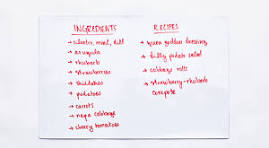 INGREDIENTS
→ cilantro, mint, dill
→ arugula
→ rhubarb
→ strawberries
→ radishes
→ potatoes
→ carrots
→ napa cabbage
→ cherry tomatoes
RECIPES
→ green goddess dressing
→ potato salad
→ cabbage rolls
→ strawberry-rhubarb
compote